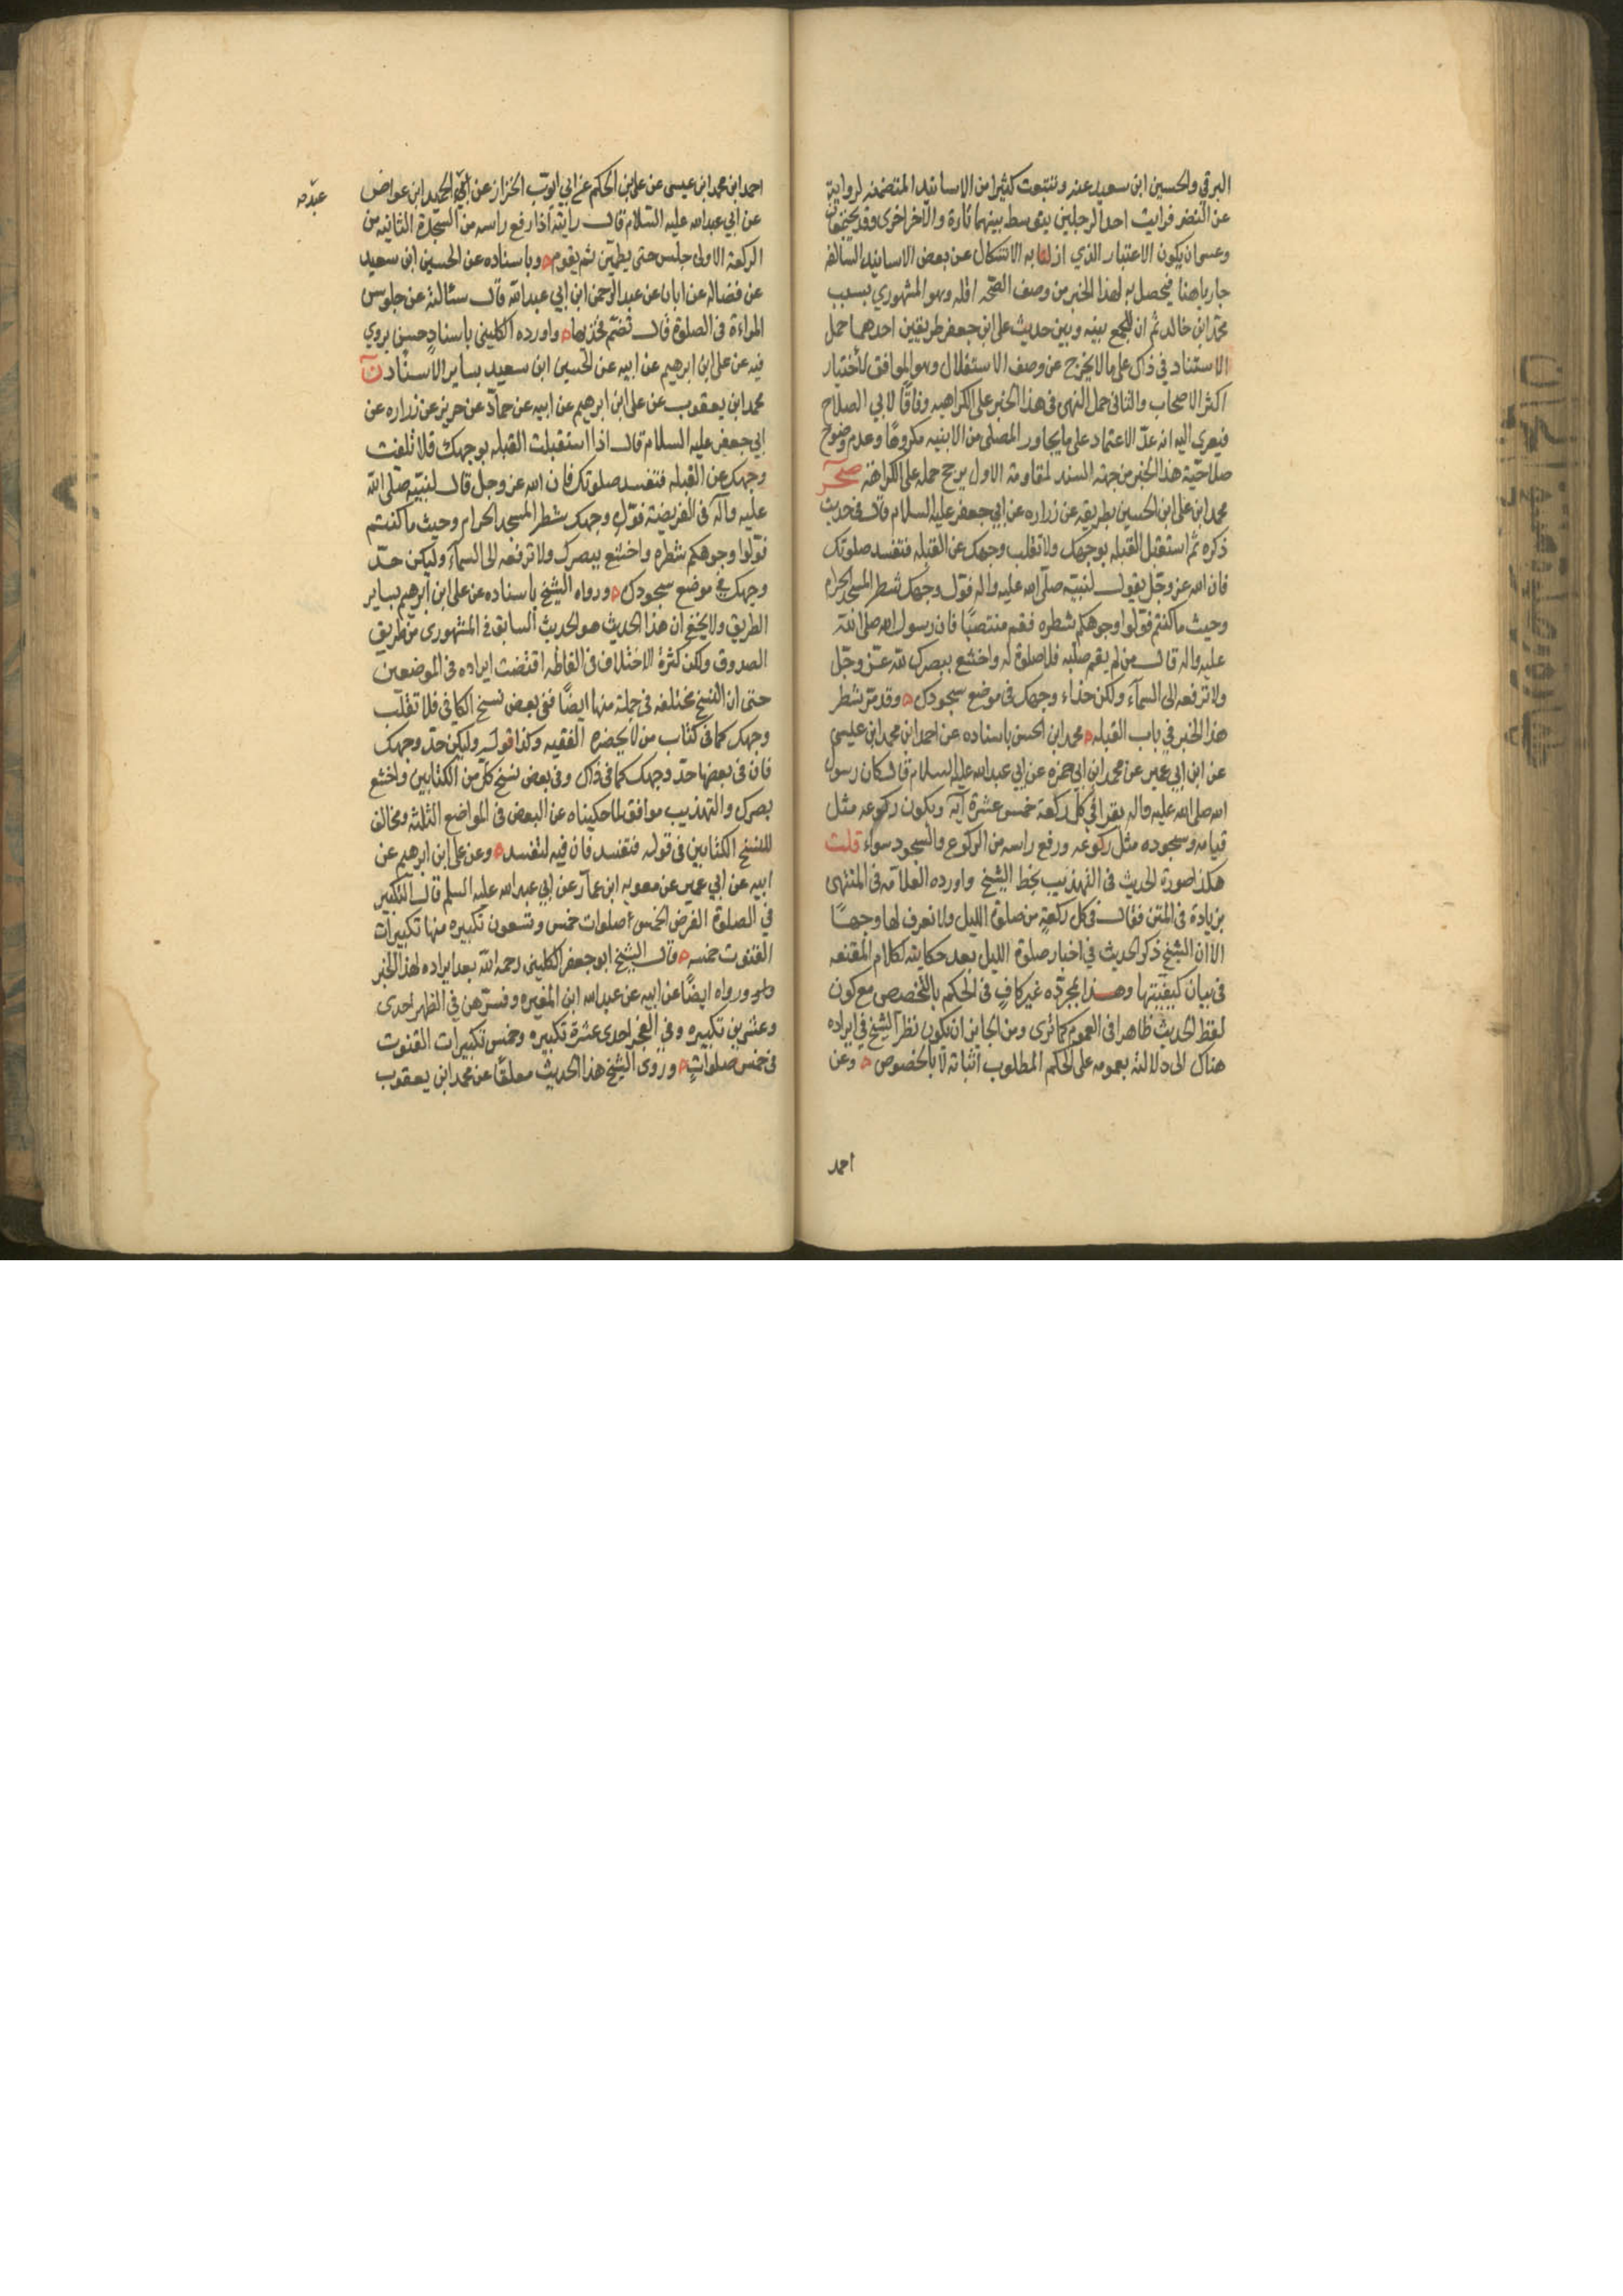 البرقي والحسين ابن سعيد عنه وتتبعت كثيرا من الاسانيد المتضمنه لروايه
عن النضر فرايت احد الرجلين يتوسط بينهما تارة والآخر اخرى وقد يجتمعان
وعسى ان يكون الاعتبار الذي ازلنا به الاشكال عن بعض الاسانيد السالفه
جاريا هنا فيحصل به لهذا الخبر من وصف الصحه اقله وهو المشهوري بسبب
محمد ابن خالد ثم ان للجمع بينه وبين حديث على ابن جعفر طريقين احدهما حمل
الاستناد في ذاك على ما لا يخرج عن وصف الاستقلال وهو الموافق لاختيار
اكثر الاصحاب والثانى حمل النهى فى هذا الخبر على الكراهيه وفاقًا لابي الصلاح
فيعزى اليه انه عدّ الاعتماد على ما يجاور المصلى من الابنيه مكروهًا وعدم وضوح
صلاحيّة هذا الخبر من جهة السند لمقاومة الاول يرجح حمله على الكراهة صحر
محمد ابن على ابن الحسين بطريقه عن زراره عن ابي جعفر عليه السلام قال فى حديث
ذكره ثم استقبل القبله بوجهك ولا تقلب وجهك عن القبله فتفسد صلوتك
فان الله عز وجّل يقول لنبيّه صلّى الله عليه واله فولّ وجهك شطر المسجد الحرام
وحيث ما كنتم فولّوا وجوهكم شطره فقم منتصبًا فان رسول الله صلى الله
عليه واله قال من لم يقم صلبه فلا صلوة له واخشع ببصرك لله عـزّ وجّل
ولا ترفعه الى السمآء ولكن حذاء وجهك فى موضع سجودك ه وقد مرّ شطر
هذا الخبر في باب القبله ه محمد ابن الحسن باسناده عن احمد ابن محمد ابن عيسى
عن ابن ابي عمير عن محمد ابن ابي حمزه عن ابي عبدالله عليه السلام قال كان رسول
الله صلى الله عليه واله يقرا في كل ركعة خمس عشرة آية ويكون ركوعه مثل
قيامه وسجوده مثل ركوعه ورفع راسه من الركوع والسجود سواء قلت
هكذا صورة الحديث فى التهذيب بخط الشيخ واورده العلاّمه فى المنتهى
بزيادة فى المتن فقال فى كل ركعةٍ من صلوة الليل ولا نعرف لها وجهًـا
الا ان الشيخ ذكر الحديث في اخبار صلوة الليل بعد حكايته لكلام المقنعه
فى بيان كيفيّتها وهـذا بمجرّده غير كافٍ فى الحكم بالتخصص مع كون
لفظ الحديث ظاهرا فى العموم كما ترى ومن الجايز ان يكون نظر الشيخ في ايراده
هناك الى دلالته بعمومه على الحكم المطلوب اثباته لا بالخصوص ه وعن
احمد
احمد ابن محمد ابن عيسى عن على ابن الحكم عن ابي ايوّب الخزاز عن ابى الحميد ابن عواض
عن ابي عبدالله عليه السلام قال رايته اذا رفع راسه من السّجدة الثانيه من
الركعة الاولى جلس حتى يطمئن ثم يقوم ه وباسناده عن الحسين ابن سعيد
عن فضاله عن ابان عن عبد الرّحمن ابن ابي عبدالله قال سئالته عن جلوس
المراءة فى الصلوة قال تضم فخذيها ه واورده الكلينى باسنادٍ حسنٍ يروي
فيه عن على ابن ابرهيم عن ابيه عن الحسين ابن سعيد بساير الاسناد ن
محمد ابن يعقوب عن على ابن ابرهيم عن ابيه عن حمادّ عن حريز عن زراره عن
ابي جعفر عليه السلام قال اذا استقبلت القبله بوجهك فلا تلفت
وجهك عن القبله فتفسد صلوتك فان الله عز وجل قال لنبيّه صلى الله
عليه وآله فى الفريضة فولّ وجهك شطر المسجد الحرام وحيث ما كنتم
فولّوا وجوهكم شطره واخشع ببصرك ولا ترفعه الى السمآء وليكن حدّ
وجهك في موضع سجودك ه ورواه الشيخ باسناده عن على ابن ابرهيم بساير
الطريق ولا يخفى ان هذا الحديث هو الحديث السابق فى المشهورى من طريق
الصدوق ولكن كثرة الاختلاف فى الفاظه اقتضت ايراده فى الموضعين
حتى ان النسخ مختلفه فى جملة منها ايضًا ففى بعض نسخ الكافى فلا تقلّب
وجهك كما فى كتاب من لا يحضره الفقيه وكذا قوله وليكن حدّ وجهك
فان فى بعضها حدّ وجهك كما فى ذاك وفى بعض نسخ كلٍّ من الكتابين واخشع
بصرك والتهذيب موافق لما حكيناه عن البعض فى المواضع الثلثه ومخالف
للنسخ الكتابين فى قوله فتفسد فان فيه لتفسد ه وعن على ابن ابرهيم عن
ابيه عن ابي عمير عن معويه ابن عمآر عن ابي عبدالله عليه السلم قال التكبير
في الصلوة الفرض الخمس صلوات خمس وتسعون تكبيره منها تكبيرات
القنوت خمسه ه وقال الشيخ ابو جعفر الكلينى رحمه الله بعد ايراده لهذا الخبر
ورواه ايضًا عن ابيه عن عبدالله ابن المغيره وفسّرهن في الظهر احدى
وعشرين تكبيره وفي الفجر احدى عشرة تكبيره وخمس تكبيرات القنوت
فى خمس صلواتٍ ه وروى الشيخ هذا الحديث معلقًا عن محمد ابن يعقوب